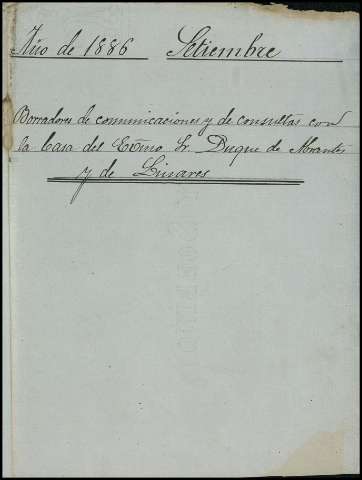 Año de 1886 Setiembre
Borradores de comunicaciones y de consultas con
la Casa del Exĉmo Sr. Duque de Abrantes
y de Linares